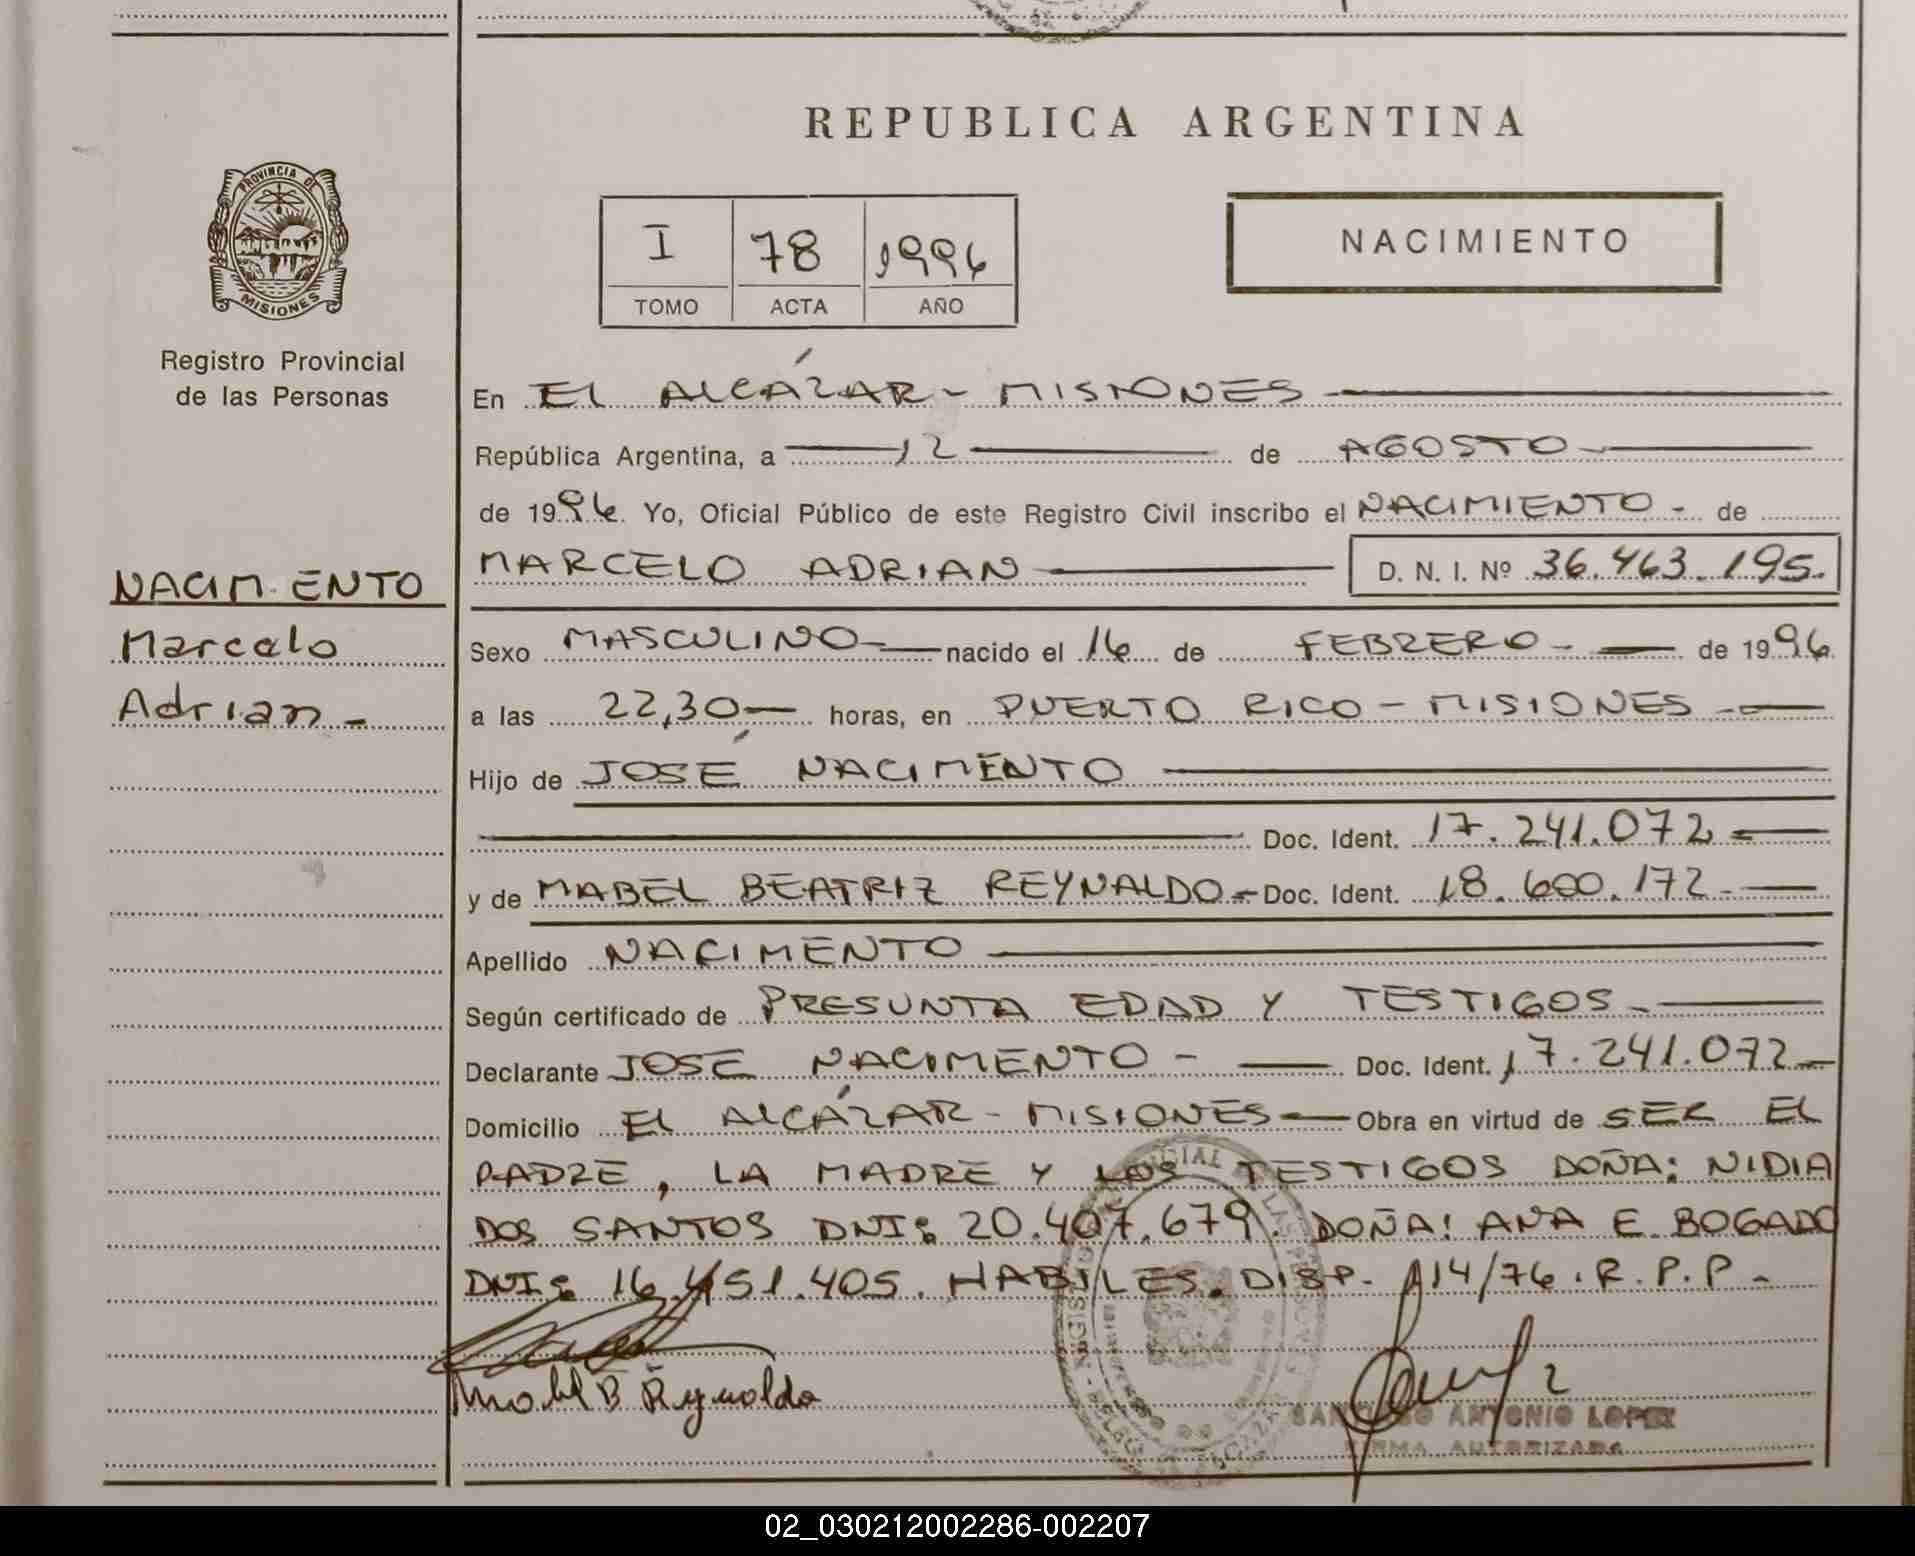 REPUBLICA ARGENTINA
PROVINCIA DE
MISIONES
Registro Provincial
de las Personas
I 78 1996
TOMO ACTA AÑO
NACIMIENTO
En EL ALCÁZAR - MISIONES
República Argentina, a 12 de AGOSTO
de 1996. Yo, Oficial Público de este Registro Civil inscribo el NACIMIENTO - de
MARCELO ADRIAN D. N. I. Nº 36.463.195.
NACIMENTO
Marcelo
Adrian -
Sexo MASCULINO nacido el 16 de FEBRERO - de 1996.
a las 22,30 horas, en PUERTO RICO - MISIONES -
Hijo de JOSÉ NACIMENTO
Doc. Ident. 17.241.072
y de MABEL BEATRIZ REYNALDO - Doc. Ident. 18.600.172 -
Apellido NACIMENTO
Según certificado de PRESUNTA EDAD Y TESTIGOS -
Declarante JOSE NACIMENTO - Doc. Ident. 17.241.072 -
Domicilio EL ALCÁZAR - MISIONES - Obra en virtud de SER EL
PADRE, LA MADRE Y LOS TESTIGOS DOÑA: NIDIA
DOS SANTOS DNI: 20.407.679. DOÑA: ANA E BOGADO
DNI: 16.451.405. HABILES. DISP. 114/76. R.P.P -
Mabel B Reynaldo
ANTONIO LOPEZ
FIRMA AUTORIZADA
02_030212002286-002207